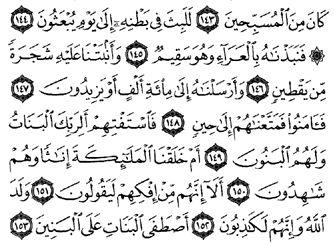 كَانَ مِنَ ٱلْمُسَبِّحِينَ ١٤٣ لَلَبِثَ فِي بَطْنِهِۦٓ إِلَىٰ يَوْمِ يُبْعَثُونَ ١٤٤
۞ فَنَبَذْنَٰهُ بِٱلْعَرَآءِ وَهُوَ سَقِيمٌ ١٤٥ وَأَنۢبَتْنَا عَلَيْهِ شَجَرَةً
مِّن يَقْطِينٍ ١٤٦ وَأَرْسَلْنَٰهُ إِلَىٰ مِا۟ئَةِ أَلْفٍ أَوْ يَزِيدُونَ ١٤٧
فَـَٔامَنُوا۟ فَمَتَّعْنَٰهُمْ إِلَىٰ حِينٍ ١٤٨ فَٱسْتَفْتِهِمْ أَلِرَبِّكَ ٱلْبَنَاتُ
وَلَهُمُ ٱلْبَنُونَ ١٤٩ أَمْ خَلَقْنَا ٱلْمَلَٰٓئِكَةَ إِنَٰثًا وَهُمْ
شَٰهِدُونَ ١٥٠ أَلَآ إِنَّهُم مِّنْ إِفْكِهِمْ لَيَقُولُونَ ١٥١ وَلَدَ
ٱللَّهُ وَإِنَّهُمْ لَكَٰذِبُونَ ١٥٢ أَصْطَفَى ٱلْبَنَاتِ عَلَى ٱلْبَنِينَ ١٥٣